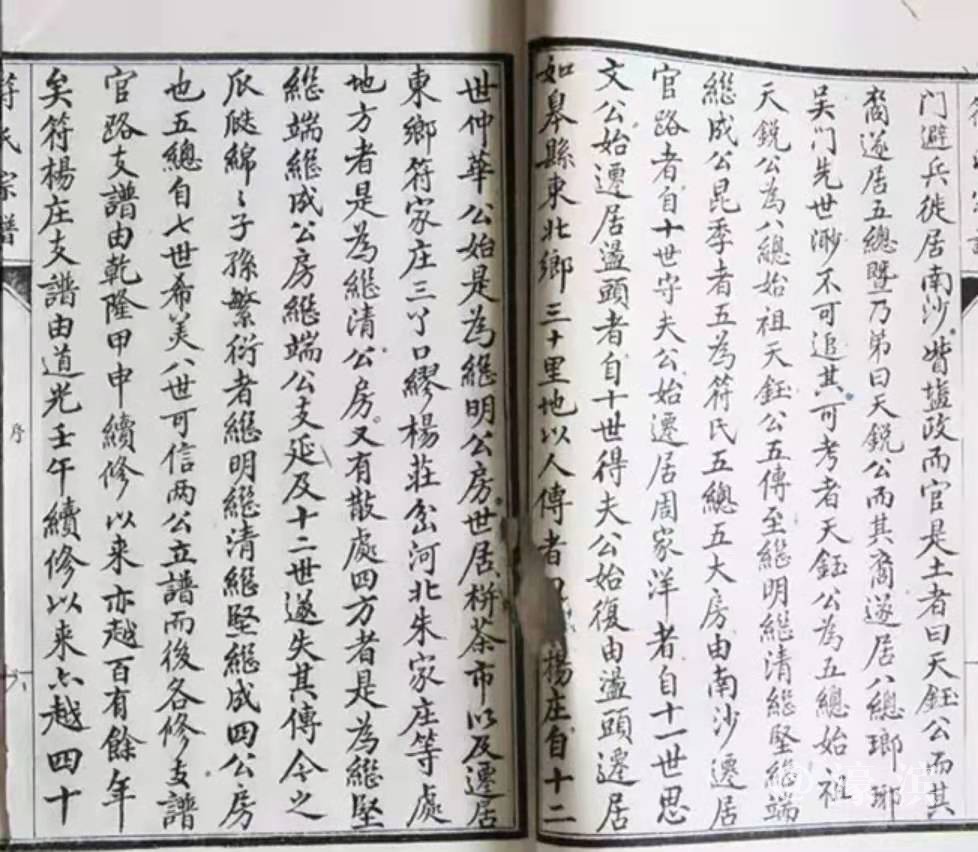 門避兵徙居南沙皆塩政而官是土者曰天鈺公而其
裔遂居五總暨乃弟曰天鋭公而其裔遂居八總瑯琊
吳门先世渺不可追其可考者天鈺公為五總始祖
天鋭公為八總始祖天鈺公五傳至繼明繼清繼堅繼端
繼成公昆季者五為符氏五總五大房由南沙遷居
官路者自十世守夫公始遷居周家洋者自十一世思
文公始遷居盪頭者自十世得夫公始復由盪頭遷居
如皋縣東北鄉三十里地以人傳者楊庄自十二
世仲華公始是為繼明公房世居栟茶市以及遷居
東鄉符家庄三丫口繆楊莊岔河北朱家庄等處
地方者是為繼清公房又有散處四方者是為繼堅
繼端繼成公房繼端公支延及十二世遂失其傳今之
瓜瓞綿〻子孫繁衍者繼明繼清繼堅繼成四公房
也五總自七世希美八世可信两公立譜而後各修支譜
官路支譜由乾隆甲申續修以来亦越百有餘年
矣符楊庄支譜由道光壬午續修以来亦越四十
符氏宗譜
序
六
@濠滨